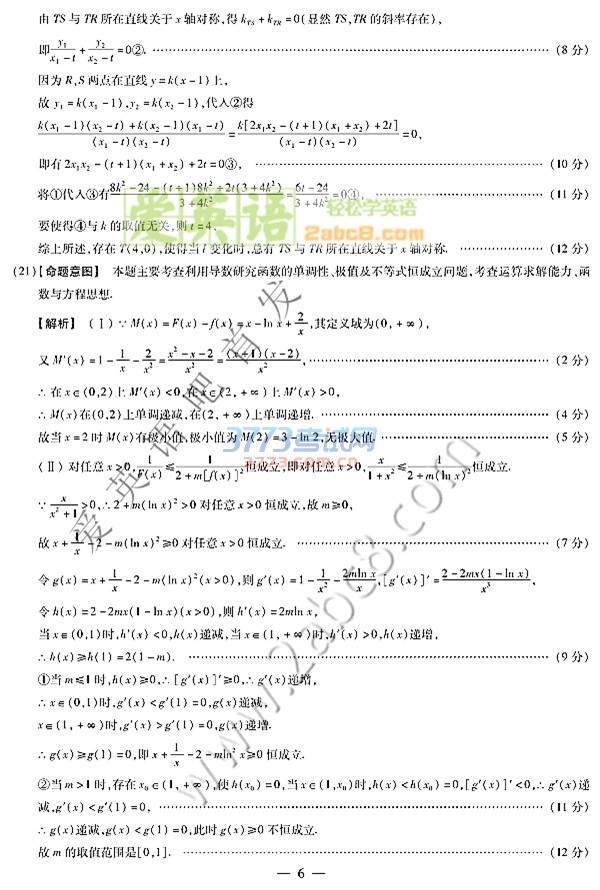 由 TS 与 TR 所在直线关于 x 轴对称,得 k_TS + k_TR = 0(显然 TS,TR 的斜率存在),
即 y₁/(x₁-t) + y₂/(x₂-t) = 0②. …… (8 分)
因为 R,S 两点在直线 y=k(x-1)上,
故 y₁=k(x₁-1),y₂=k(x₂-1),代入②得
[k(x₁-1)(x₂-t)+k(x₂-1)(x₁-t)]/[(x₁-t)(x₂-t)] = k[2x₁x₂-(t+1)(x₁+x₂)+2t]/[(x₁-t)(x₂-t)] = 0,
即有 2x₁x₂-(t+1)(x₁+x₂)+2t=0③, …… (10 分)
将①代入③有 [8k²-24-(t+1)8k²+2t(3+4k²)]/(3+4k²) = (6t-24)/(3+4k²) = 0④, …… (11 分)
要使得④与 k 的取值无关,则 t=4,
综上所述,存在 T(4,0),使得当 l 变化时,总有 TS 与 TR 所在直线关于 x 轴对称. …… (12 分)
爱英语吧
轻松学英语
2abc8.com
(21)【命题意图】 本题主要考查利用导数研究函数的单调性、极值及不等式恒成立问题,考查运算求解能力、函
数与方程思想.
【解析】 (Ⅰ)∵M(x)=F(x)-f(x)=x-ln x+2/x,其定义域为(0,+∞),
又 M′(x)=1-1/x-2/x²=(x²-x-2)/x²=(x+1)(x-2)/x², …… (2 分)
∴在 x∈(0,2)上 M′(x)<0,在 x∈(2,+∞)上 M′(x)>0,
∴M(x)在(0,2)上单调递减,在(2,+∞)上单调递增. …… (4 分)
故当 x=2 时 M(x)有极小值,极小值为 M(2)=3-ln 2,无极大值. …… (5 分)
3773考试网
3773.com.cn
(Ⅱ)对任意 x>0,1/F(x)≤1/(2+m[f(x)]²)恒成立,即对任意 x>0,x/(1+x²)≤1/(2+m(ln x)²)恒成立.
∵x/(x²+1)>0,∴2+m(ln x)²>0 对任意 x>0 恒成立,故 m≥0,
故 x+1/x-2-m(ln x)²≥0 对任意 x>0 恒成立. …… (7 分)
令 g(x)=x+1/x-2-m(ln x)²(x>0),则 g′(x)=1-1/x²-2mln x/x,[g′(x)]′=(2-2mx(1-ln x))/x³,
令 h(x)=2-2mx(1-ln x)(x>0),则 h′(x)=2mln x,
当 x∈(0,1)时,h′(x)<0,h(x)递减,当 x∈(1,+∞)时,h′(x)>0,h(x)递增,
∴h(x)≥h(1)=2(1-m). …… (9 分)
①当 m≤1 时,h(x)≥0,∴[g′(x)]′≥0,∴g′(x)递增,
∴x∈(0,1)时,g′(x)<g′(1)=0,g(x)递减,
x∈(1,+∞)时,g′(x)>g′(1)=0,g(x)递增.
∴g(x)≥g(1)=0,即 x+1/x-2-mln²x≥0 恒成立.
②当 m>1 时,存在 x₀∈(1,+∞),使 h(x₀)=0,当 x∈(1,x₀)时,h(x)<h(x₀)=0,[g′(x)]′<0,∴g′(x)递
减,g′(x)<g′(1)=0, …… (11 分)
∴g(x)递减,g(x)<g(1)=0,此时 g(x)≥0 不恒成立.
故 m 的取值范围是[0,1]. …… (12 分)
爱英语吧首发
www.2abc8.com
— 6 —